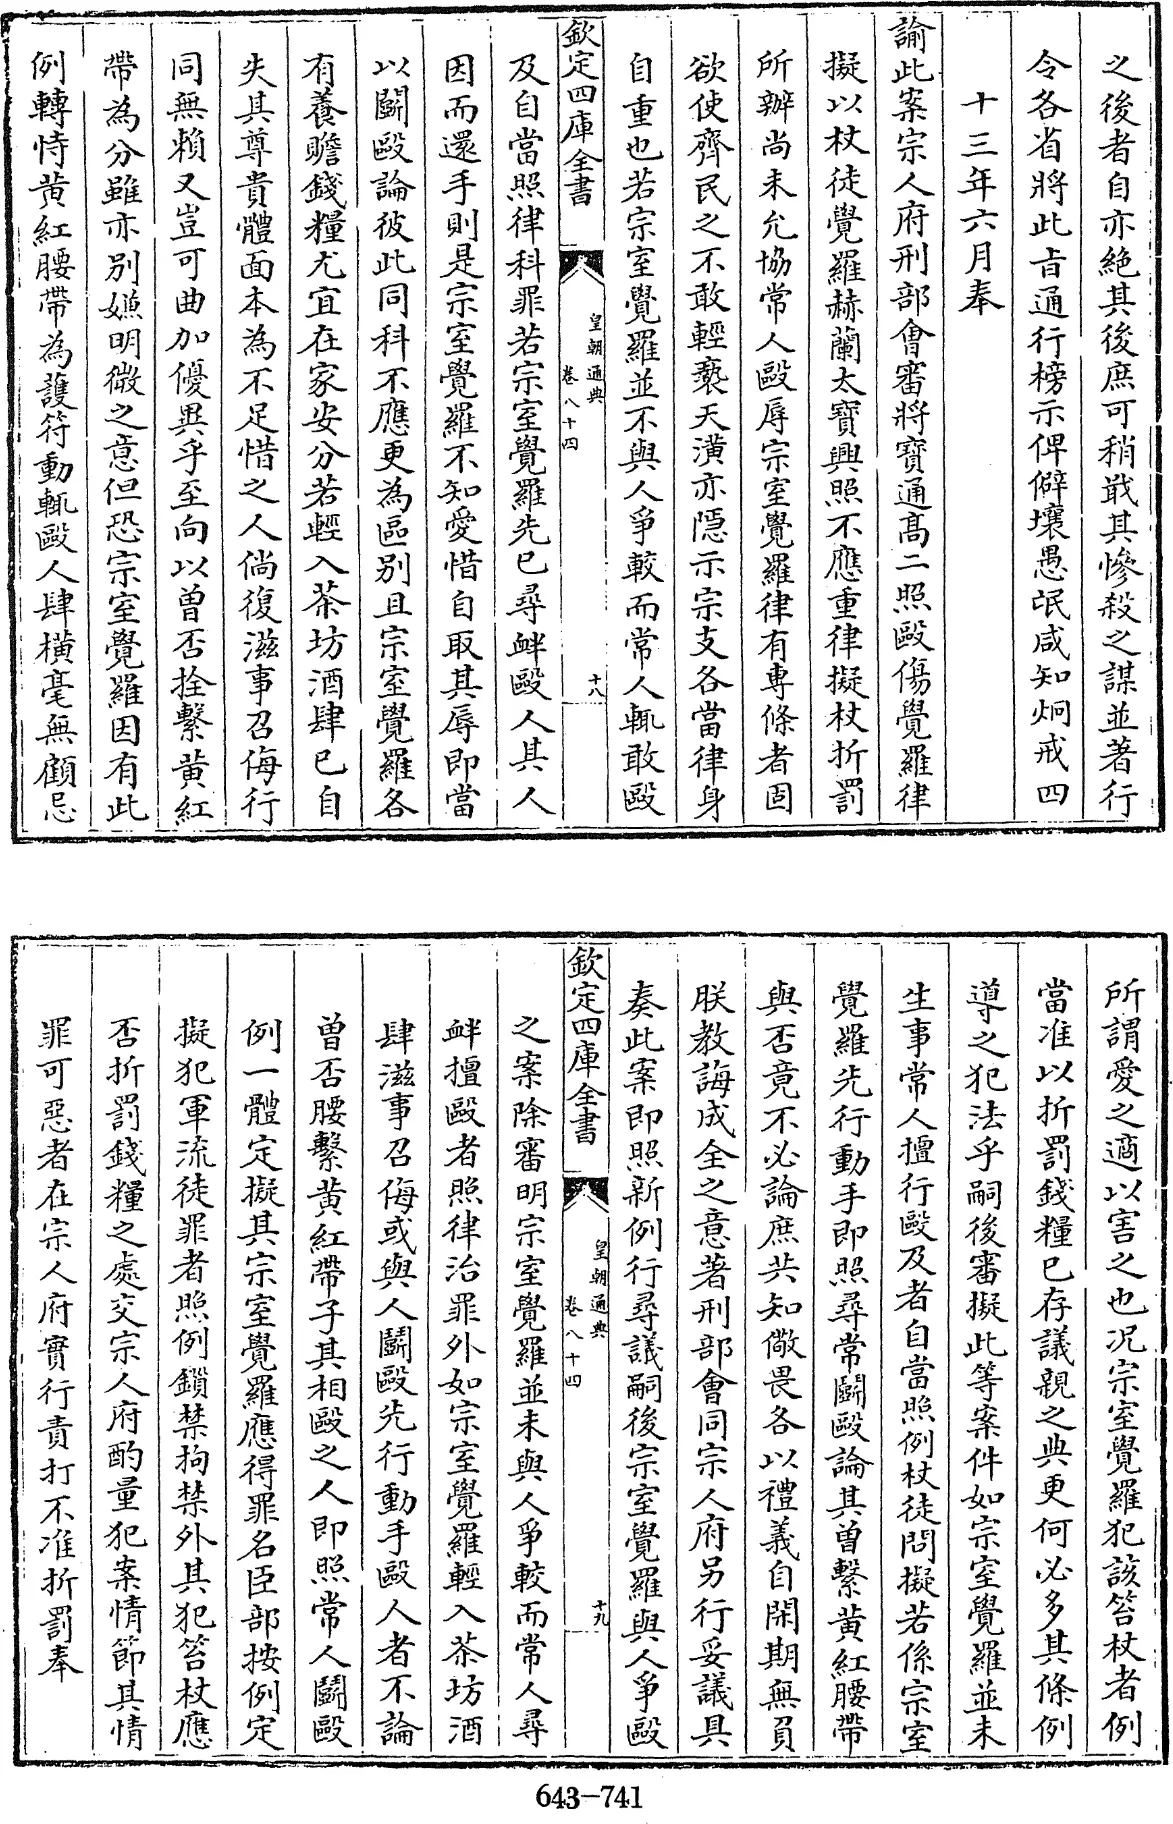 之後者自亦絶其後庶可稍戢其慘殺之謀並著行
令各省將此旨通行榜示俾僻壤愚氓咸知炯戒四
十三年六月奉
諭此案宗人府刑部會審將寳通髙二照毆傷覺羅律
擬以杖徒覺羅赫蘭太寳興照不應重律擬杖折罰
所辦尚未允協常人毆辱宗室覺羅律有專條者固
欲使齊民之不敢輕褻天潢亦隠示宗支各當律身
自重也若宗室覺羅並不與人爭較而常人輒敢毆
欽定四庫全書
皇朝通典
卷八十四
十八
及自當照律科罪若宗室覺羅先已尋衅毆人其人
因而還手則是宗室覺羅不知愛惜自取其辱即當
以鬬毆論彼此同科不應更為區别且宗室覺羅各
有養贍錢糧尤宜在家安分若輕入茶坊酒肆已自
失其尊貴體面本為不足惜之人倘復滋事召侮行
同無賴又豈可曲加優異乎至向以曾否拴繫黄紅
帶為分雖亦别嫌明微之意但恐宗室覺羅因有此
例轉恃黄紅腰帶為護符動輒毆人肆横毫無顧忌
所謂愛之適以害之也况宗室覺羅犯該笞杖者例
當准以折罰錢糧已存議親之典更何必多其條例
導之犯法乎嗣後審擬此等案件如宗室覺羅並未
生事常人擅行毆及者自當照例杖徒問擬若係宗室
覺羅先行動手即照尋常鬬毆論其曾繫黄紅腰帶
與否竟不必論庶共知儆畏各以禮義自閑期無負
朕教誨成全之意著刑部會同宗人府另行妥議具
奏此案即照新例行尋議嗣後宗室覺羅與人爭毆
欽定四庫全書
皇朝通典
卷八十四
十九
之案除審明宗室覺羅並未與人爭較而常人尋
衅擅毆者照律治罪外如宗室覺羅輕入茶坊酒
肆滋事召侮或與人鬬毆先行動手毆人者不論
曾否腰繫黄紅帶子其相毆之人即照常人鬬毆
例一體定擬其宗室覺羅應得罪名臣部按例定
擬犯軍流徒罪者照例鎖禁拘禁外其犯笞杖應
否折罰錢糧之處交宗人府酌量犯案情節其情
罪可惡者在宗人府實行責打不准折罰奉
643-741